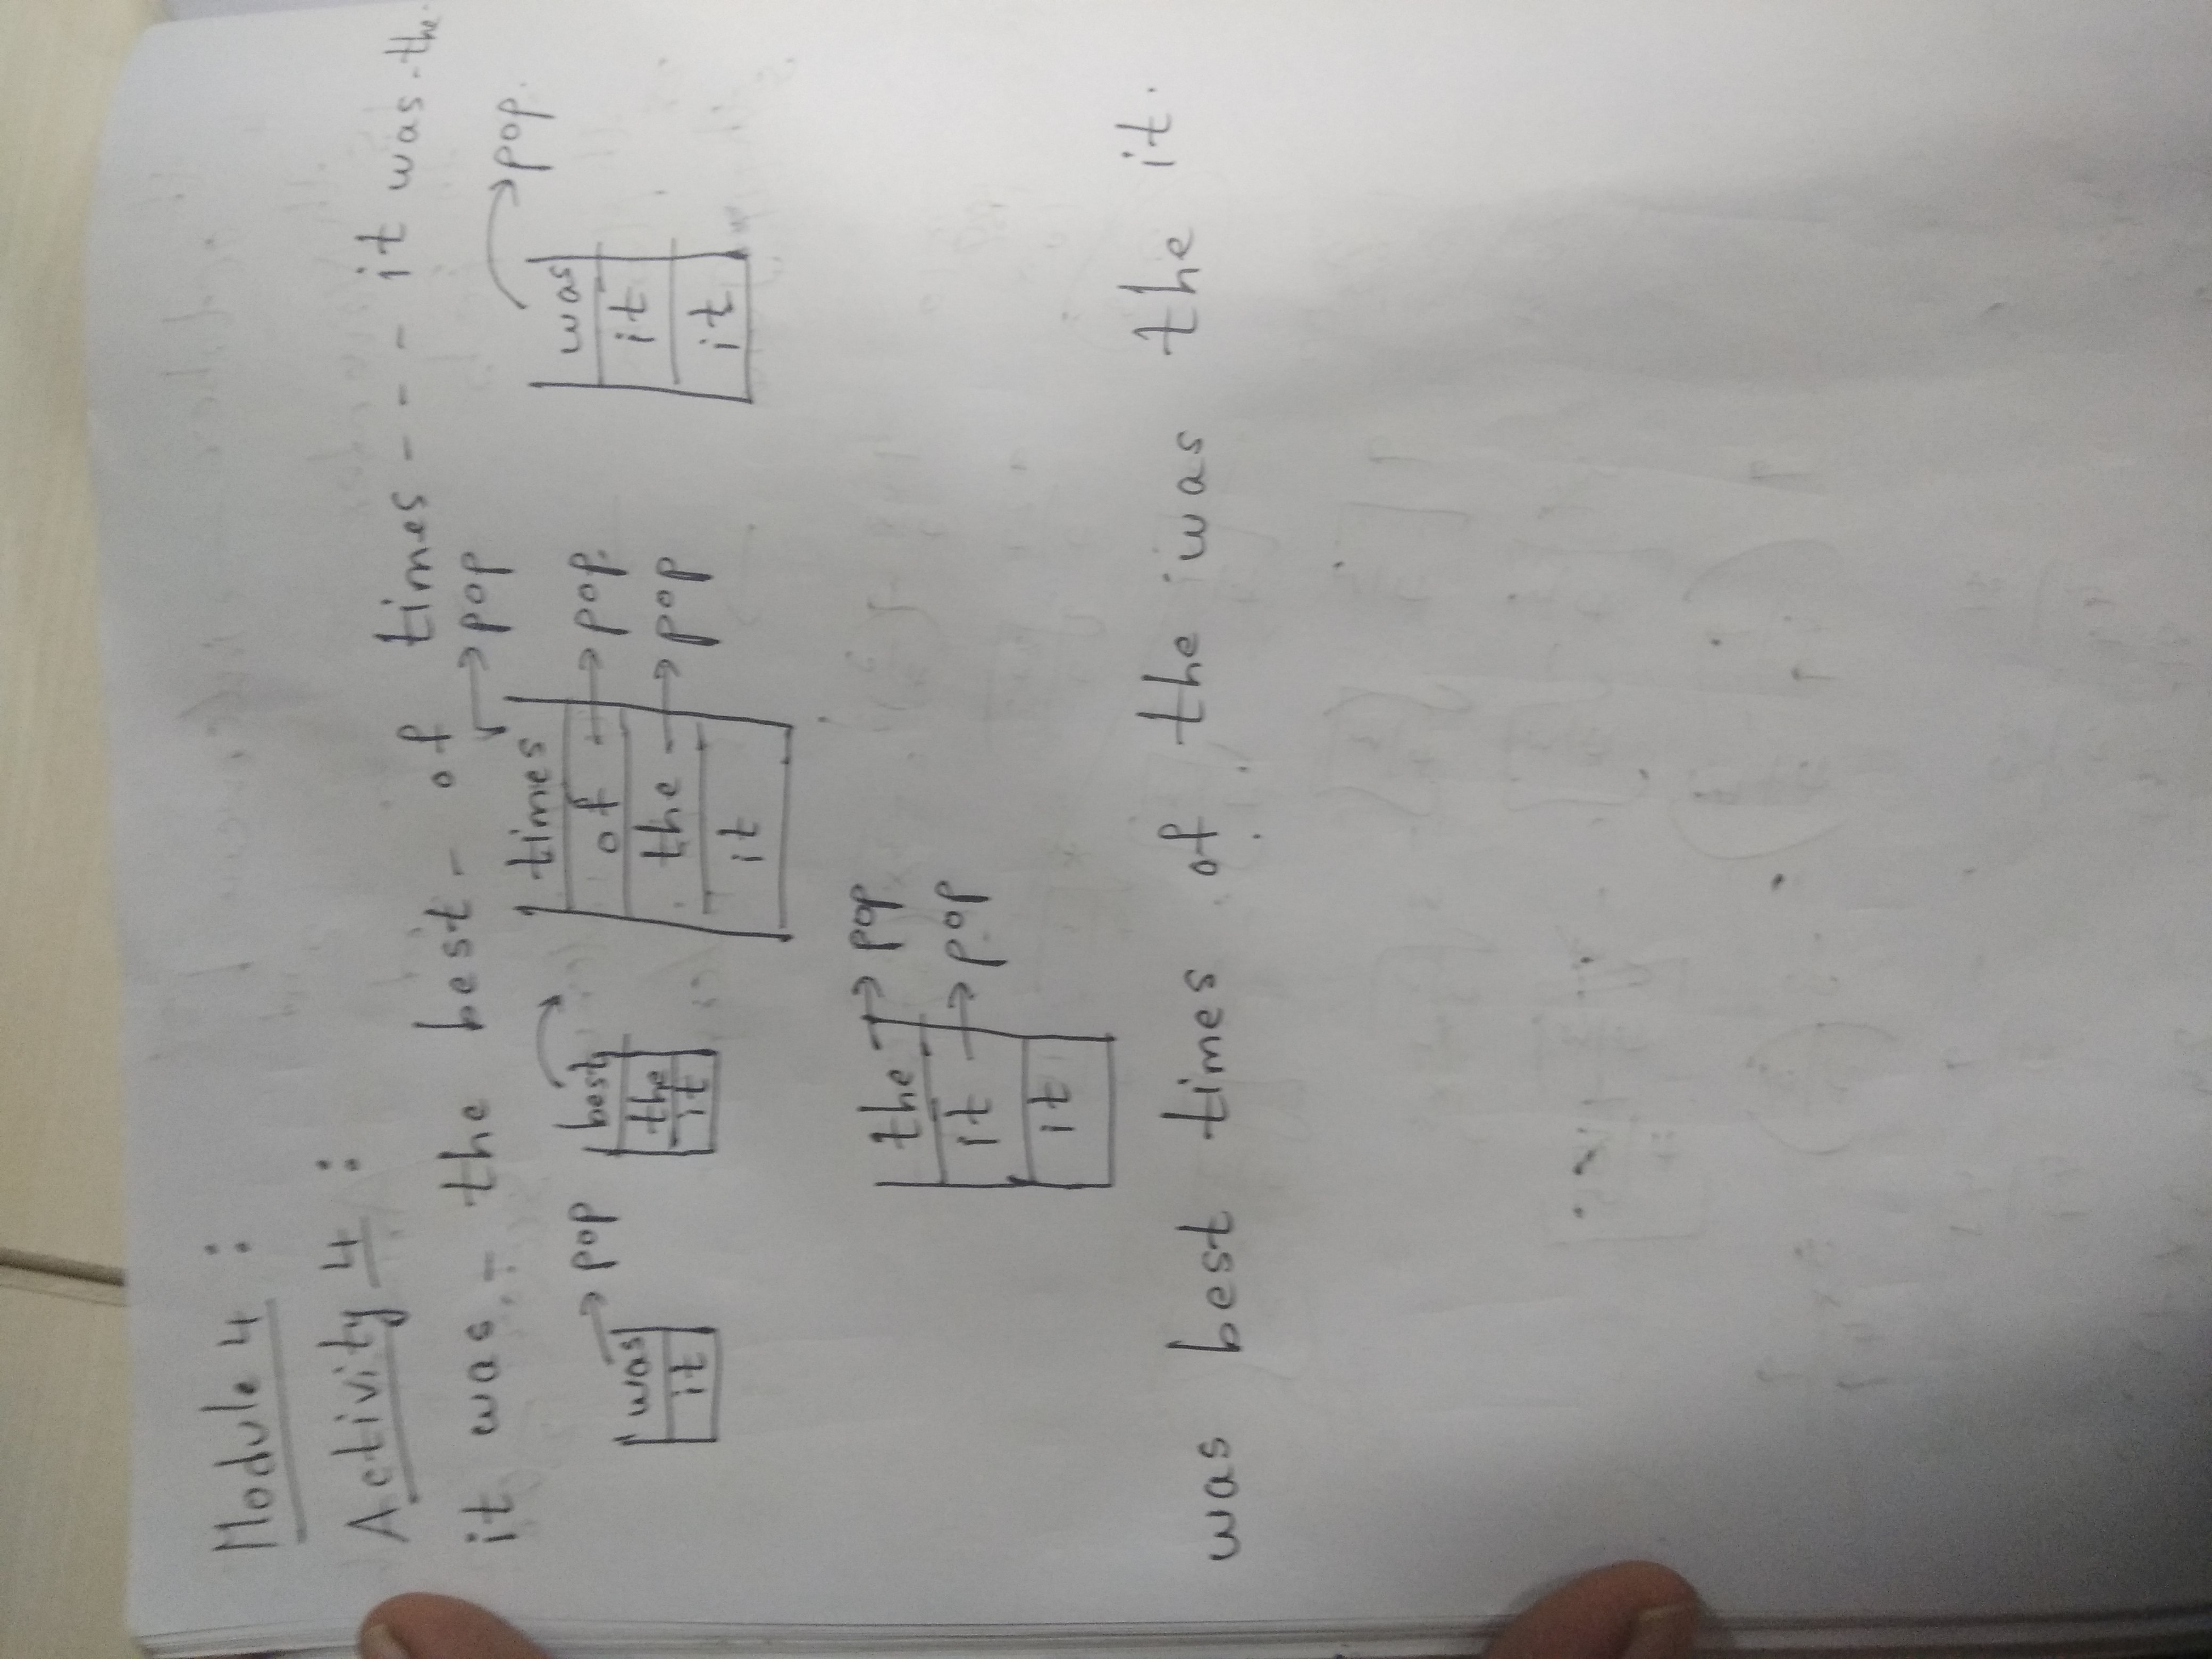 Module 4 :
Activity 4 :
it was - the best - of times - - - it was - the.
was → pop
it
best
the
it
times → pop
of → pop.
the → pop
it
was → pop.
it
it
the → pop
it → pop
it
was best times of the was the it.